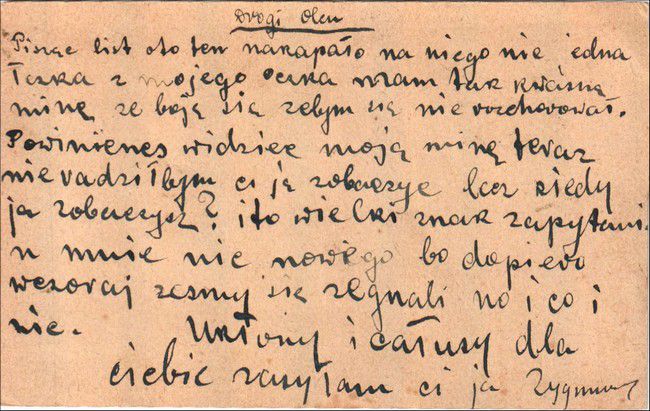 Drogi Oleu
Pisząc list oto ten nakapało na niego nie jedna
Łuka z mojego ocka mam tak kwaśną
minę ze boję się zebym się nie rozchorował.
Powinienes widziec moją minę teraz
nie radziłbym ci ją zobaczyc lecz kiedy
ją zobaczysz? i to wielki znak zapytani.
u mnie nic nowego bo dopiero
wczoraj zesmy się zegnali no i co i
nic. Ukłony i całusy dla
ciebie zasyłam ci ja Zygmunt